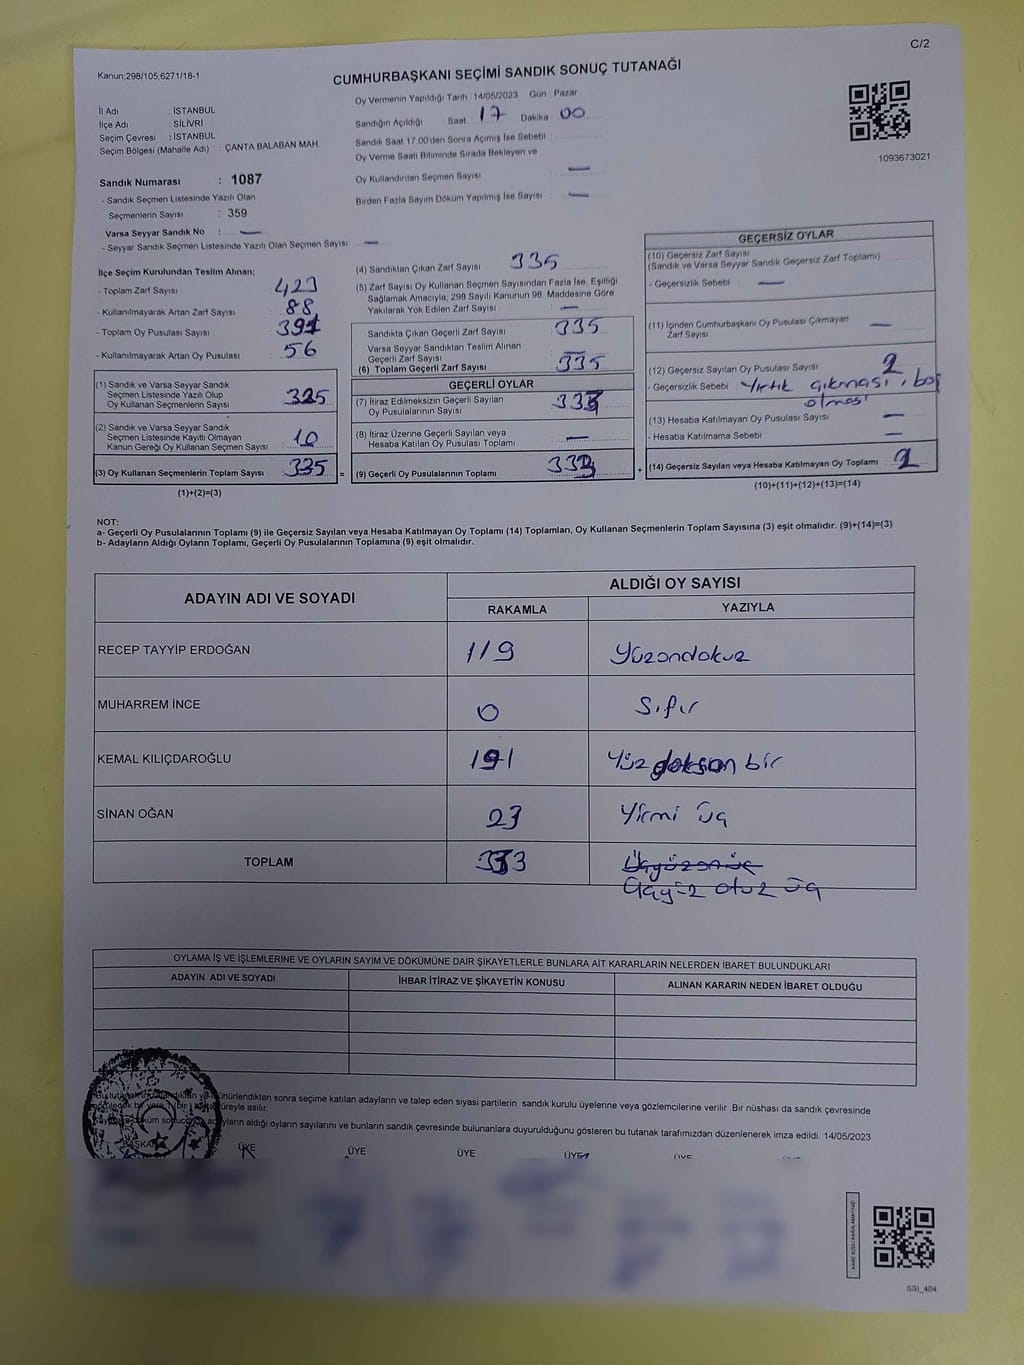 C/2
Kanun;298/105;6271/16-1
CUMHURBAŞKANI SEÇİMİ SANDIK SONUÇ TUTANAĞI
İl Adı : İSTANBUL
İlçe Adı : SİLİVRİ
Seçim Çevresi : İSTANBUL
Seçim Bölgesi (Mahalle Adı) : ÇANTA BALABAN MAH
Sandık Numarası : 1087
- Sandık Seçmen Listesinde Yazılı Olan
Seçmenlerin Sayısı : 359
Varsa Seyyar Sandık No : —
- Seyyar Sandık Seçmen Listesinde Yazılı Olan Seçmen Sayısı : —
Oy Vermenin Yapıldığı Tarih : 14/05/2023 Gün : Pazar
Sandığın Açıldığı Saat : 17 Dakika : 00
Sandık Saat 17.00'den Sonra Açımış İse Sebebi :
Oy Verme Saati Bitiminde Sırada Bekleyen ve
Oy Kullandırılan Seçmen Sayısı : —
Birden Fazla Sayım Döküm Yapılmış İse Sayısı : —
1093673021
İlçe Seçim Kurulundan Teslim Alınan;
- Toplam Zarf Sayısı : 423
- Kullanılmayarak Artan Zarf Sayısı : 88
- Toplam Oy Pusulası Sayısı : 391
- Kullanılmayarak Artan Oy Pusulası : 56
(1) Sandık ve Varsa Seyyar Sandık
Seçmen Listesinde Yazılı Olup
Oy Kullanan Seçmenlerin Sayısı : 325
(2) Sandık ve Varsa Seyyar Sandık
Seçmen Listesinde Kayıtlı Olmayan
Kanun Gereği Oy Kullanan Seçmen Sayısı : 10
(3) Oy Kullanan Seçmenlerin Toplam Sayısı : 335 =
(1)+(2)=(3)
(4) Sandıktan Çıkan Zarf Sayısı : 335
(5) Zarf Sayısı Oy Kullanan Seçmen Sayısından Fazla İse, Eşitliği
Sağlamak Amacıyla; 298 Sayılı Kanunun 98. Maddesine Göre
Yakılarak Yok Edilen Zarf Sayısı : —
Sandıkta Çıkan Geçerli Zarf Sayısı : 335
Varsa Seyyar Sandıktan Teslim Alınan
Geçerli Zarf Sayısı : —
(6) Toplam Geçerli Zarf Sayısı : 335
GEÇERLİ OYLAR
(7) İtiraz Edilmeksizin Geçerli Sayılan
Oy Pusulalarının Sayısı : 333
(8) İtiraz Üzerine Geçerli Sayılan veya
Hesaba Katılan Oy Pusulası Toplamı : —
(9) Geçerli Oy Pusulalarının Toplamı : 333 +
GEÇERSİZ OYLAR
(10) Geçersiz Zarf Sayısı
(Sandık ve Varsa Seyyar Sandık Geçersiz Zarf Toplamı) :
- Geçersizlik Sebebi : —
(11) İçinden Cumhurbaşkanı Oy Pusulası Çıkmayan
Zarf Sayısı : —
(12) Geçersiz Sayılan Oy Pusulası Sayısı : 2
- Geçersizlik Sebebi : Yırtık çıkması, boş
olması
(13) Hesaba Katılmayan Oy Pusulası Sayısı : —
- Hesaba Katılmama Sebebi : —
(14) Geçersiz Sayılan veya Hesaba Katılmayan Oy Toplamı : 2
(10)+(11)+(12)+(13)=(14)
NOT:
a- Geçerli Oy Pusulalarının Toplamı (9) ile Geçersiz Sayılan veya Hesaba Katılmayan Oy Toplamı (14) Toplamları, Oy Kullanan Seçmenlerin Toplam Sayısına (3) eşit olmalıdır. (9)+(14)=(3)
b- Adayların Aldığı Oyların Toplamı, Geçerli Oy Pusulalarının Toplamına (9) eşit olmalıdır.
ADAYIN ADI VE SOYADI
ALDIĞI OY SAYISI
RAKAMLA YAZIYLA
RECEP TAYYİP ERDOĞAN 119 Yüzondokuz
MUHARREM İNCE 0 Sıfır
KEMAL KILIÇDAROĞLU 191 Yüz doksan bir
SİNAN OĞAN 23 Yirmi üç
TOPLAM 333 Üçyüzonüç
Üçyüz otuz üç
OYLAMA İŞ VE İŞLEMLERİNE VE OYLARIN SAYIM VE DÖKÜMÜNE DAİR ŞİKAYETLERLE BUNLARA AİT KARARLARIN NELERDEN İBARET BULUNDUKLARI
ADAYIN ADI VE SOYADI İHBAR İTİRAZ VE ŞİKAYETİN KONUSU ALINAN KARARIN NEDEN İBARET OLDUĞU
sonra seçime katılan adayların ve talep eden siyasi partilerin sandık kurulu üyelerine veya gözlemcilerine verilir .Bir nüshası da sandık çevresinde
asılır.
aldığı oyların sayılarını ve bunların sandık çevresinde bulunanlara duyurulduğunu gösteren bu tutanak tarafımızdan düzenlenerek imza edildi. 14/05/2023
BAŞKAN ÜYE ÜYE ÜYE ÜYE ÜYE
SSI_404